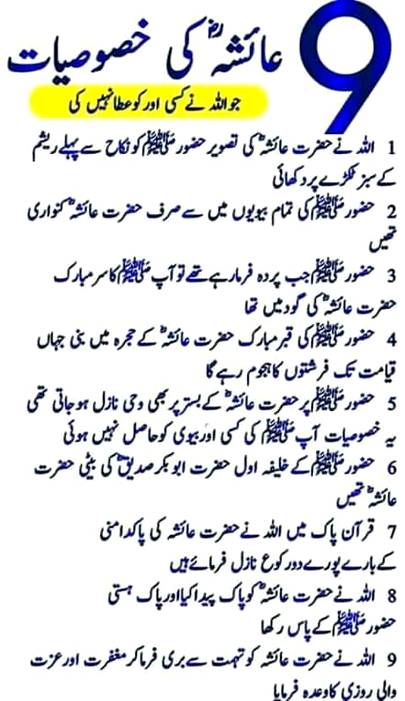 9
عائشہؓ کی خصوصیات
جو اللہ نے کسی اور کو عطا نہیں کی
1 اللہ نے حضرت عائشہؓ کی تصویر حضور ﷺ کو نکاح سے پہلے ریشم
کے سبز ٹکڑے پر دکھائی
2 حضور ﷺ کی تمام بیویوں میں سے صرف حضرت عائشہؓ کنواری
تھیں
3 حضور ﷺ جب پردہ فرما رہے تھے تو آپ ﷺ کا سر مبارک
حضرت عائشہؓ کی گود میں تھا
4 حضور ﷺ کی قبر مبارک حضرت عائشہؓ کے حجرہ میں بنی جہاں
قیامت تک فرشتوں کا ہجوم رہے گا
5 حضور ﷺ پر حضرت عائشہؓ کے بستر پر بھی وحی نازل ہو جاتی تھی
یہ خصوصیات آپ ﷺ کی کسی اور بیوی کو حاصل نہیں ہوئی
6 حضور ﷺ کے خلیفہ اول حضرت ابو بکر صدیقؓ کی بیٹی حضرت
عائشہؓ تھیں
7 قرآن پاک میں اللہ نے حضرت عائشہ کی پاکدامنی
کے بارے پورے دو رکوع نازل فرمائے ہیں
8 اللہ نے حضرت عائشہؓ کو پاک پیدا کیا اور پاک ہستی
حضور ﷺ کے پاس رکھا
9 اللہ نے حضرت عائشہ کو تہمت سے بری فرما کر مغفرت اور عزت
والی روزی کا وعدہ فرمایا